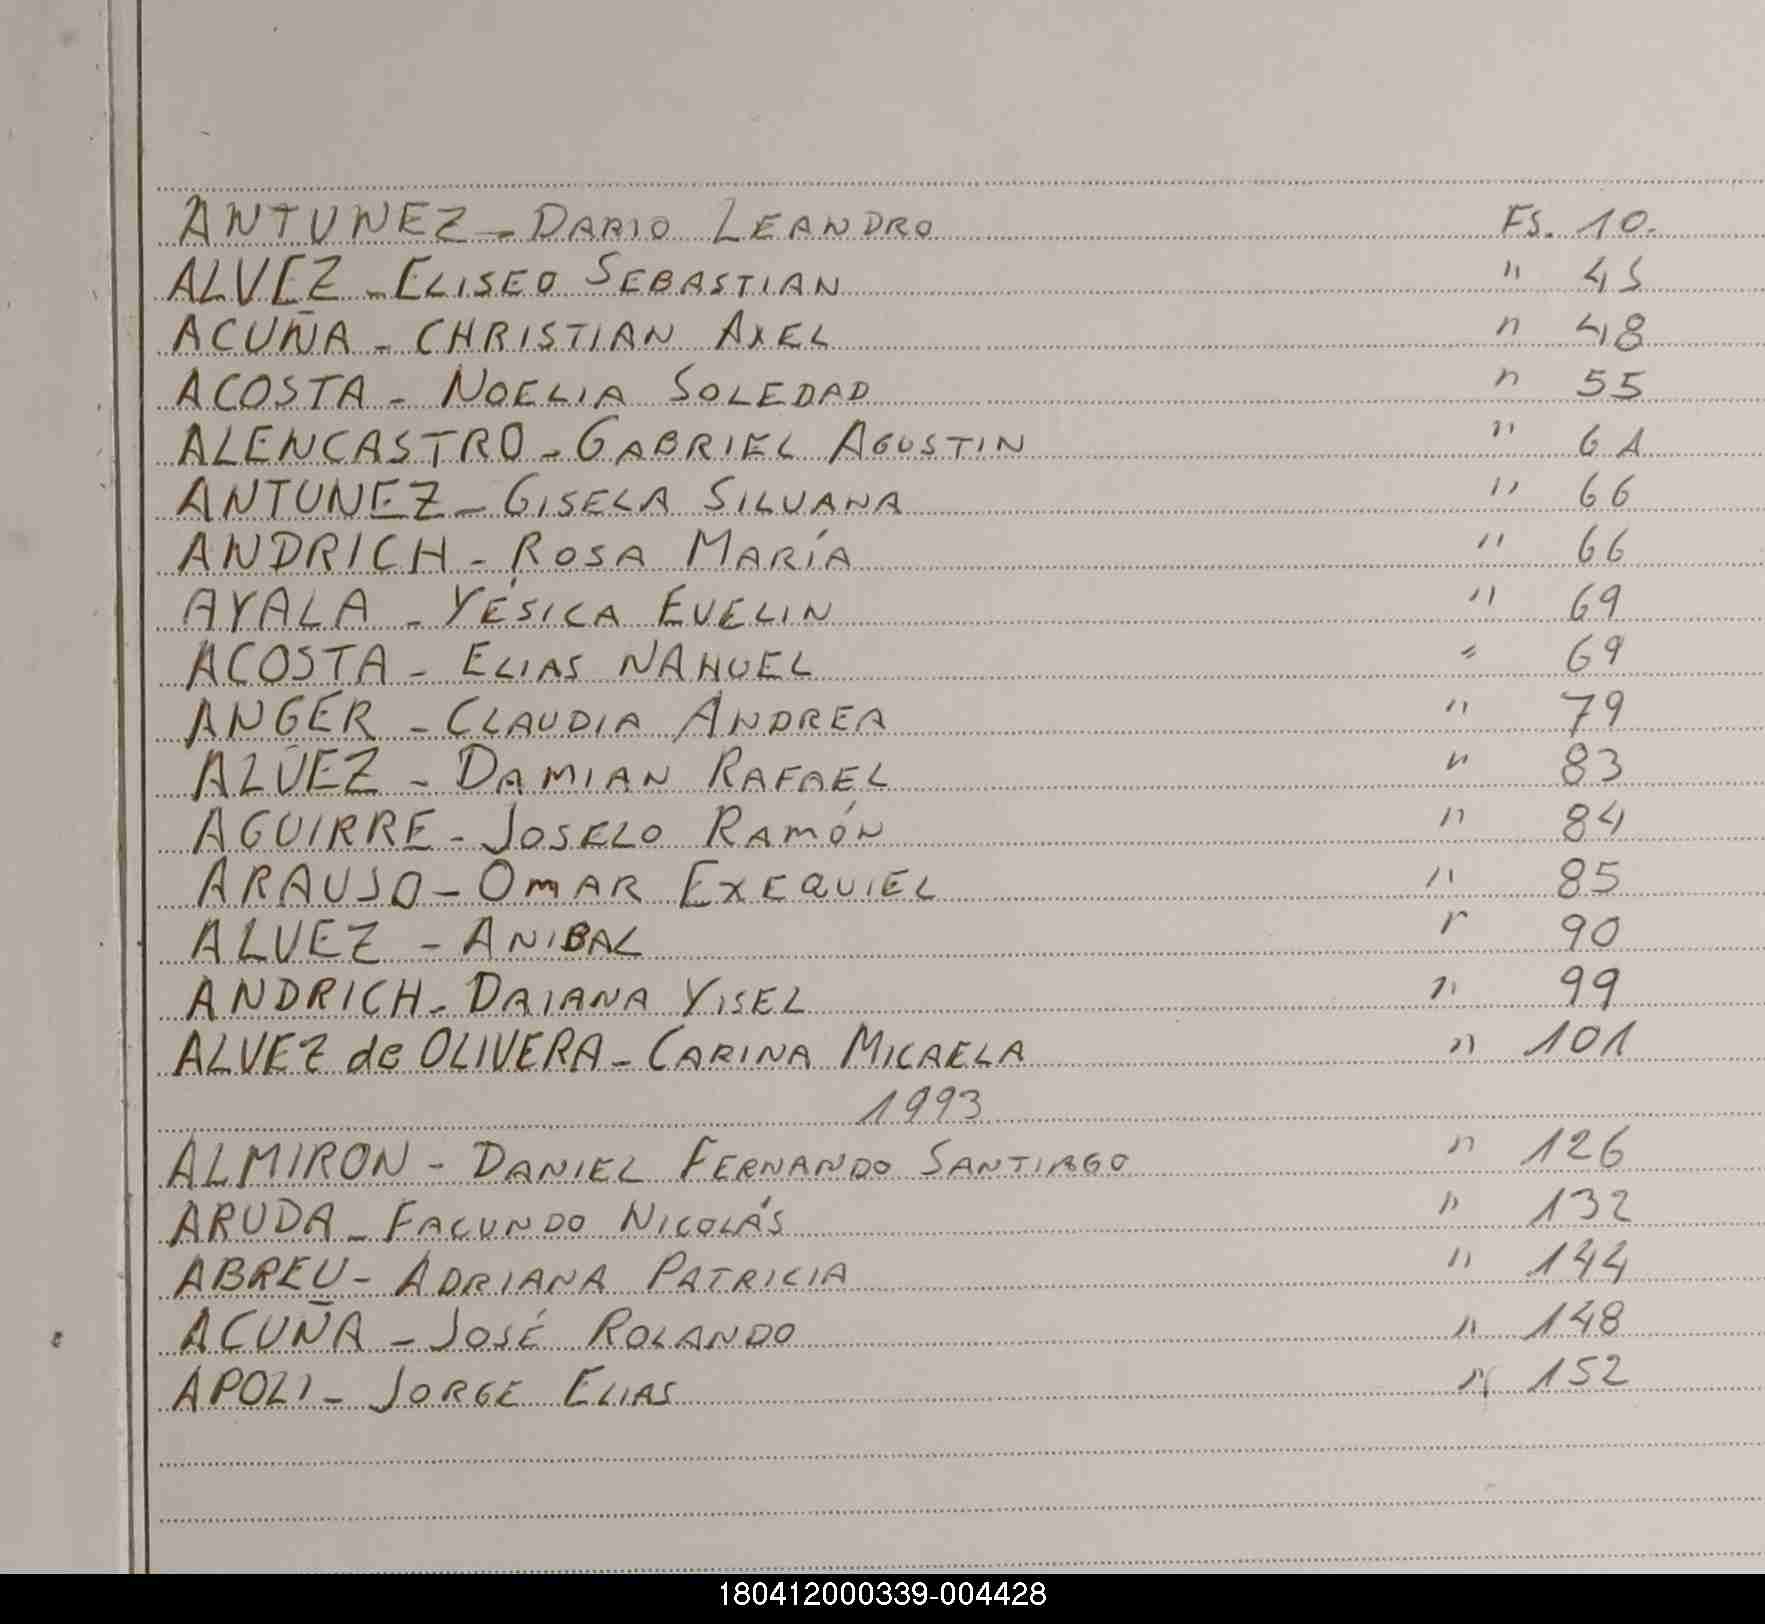 ANTUNEZ - DARIO LEANDRO FS. 10.
ALVEZ - ELISEO SEBASTIAN " 45
ACUÑA - CHRISTIAN AXEL " 48
ACOSTA - NOELIA SOLEDAD " 55
ALENCASTRO - GABRIEL AGUSTIN " 61
ANTUNEZ - GISELA SILVANA " 66
ANDRICH - ROSA MARÍA " 66
AYALA - YÉSICA EVELIN " 69
ACOSTA - ELIAS NAHUEL " 69
ANGER - CLAUDIA ANDREA " 79
ALVEZ - DAMIAN RAFAEL " 83
AGUIRRE - JOSELO RAMÓN " 84
ARAUJO - OMAR EXEQUIEL " 85
ALVEZ - ANIBAL " 90
ANDRICH - DAIANA YISEL " 99
ALVEZ de OLIVERA - CARINA MICAELA " 101
1993
ALMIRON - DANIEL FERNANDO SANTIAGO " 126
ARUDA - FACUNDO NICOLÁS " 132
ABREU - ADRIANA PATRICIA " 144
ACUÑA - JOSÉ ROLANDO " 148
APOLI - JORGE ELIAS " 152
180412000339-004428